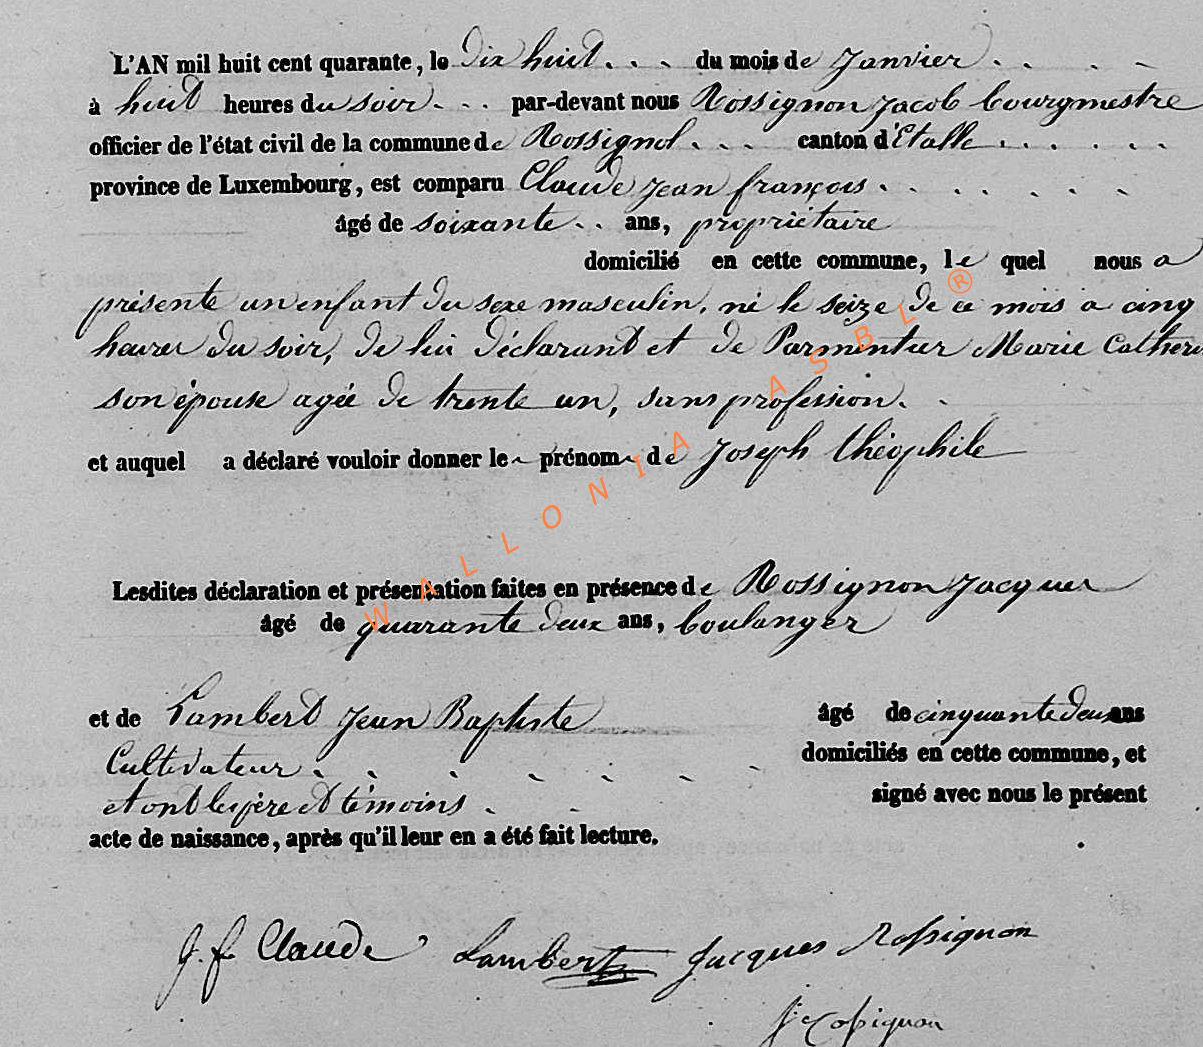 L'AN mil huit cent quarante, le dix huit . . . du mois de Janvier . . . .
à huit heures du soir . . . par-devant nous Rossignon Jacob bourgmestre
officier de l'état civil de la commune de Rossignol . . . canton d'Etalle . . . . .
province de Luxembourg, est comparu Claude Jean françois . . . . . . .
âgé de soixante . . ans, propriétaire
domicilié en cette commune, le quel nous a
présenté un enfant du sexe masculin, né le seize de ce mois a cinq
heures du soir, de lui déclarant et de Parmentier Marie Catheri
son épouse agée de trente un, sans profession. .
et auquel a déclaré vouloir donner le prénom de Joseph théophile
Lesdites déclaration et présentation faites en présence de Rossignon Jacques
âgé de quarante deux ans, boulanger
et de Lambert Jean Baptiste âgé de cinquante deux ans
Cultivateur . . . . . . . domiciliés en cette commune, et
et ont les père et témoins . . signé avec nous le présent
acte de naissance, après qu'il leur en a été fait lecture.
J. f. Claude Lambert Jacques Rossignon
J. Rossignon
WALLONIA ASBL ®